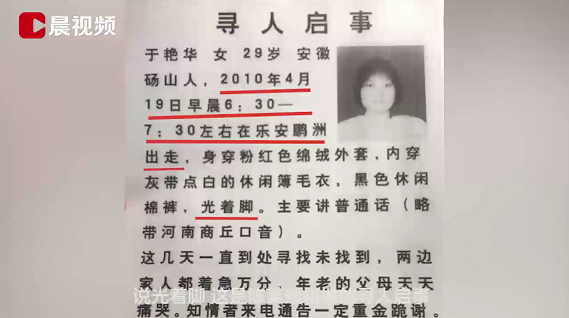 晨视频
寻人启事
于艳华 女 29岁 安徽
砀山人，2010年4月
19日早晨6：30—
7：30左右在乐安鹏洲
出走，身穿粉红色绵绒外套，内穿
灰带点白的休闲薄毛衣，黑色休闲
棉裤，光着脚。主要讲普通话（略
带河南商丘口音）。
这几天一直到处寻找未找到，两边
家人都着急万分、年老的父母天天
说光着脚 这是
寻人启事
痛哭。知情者来电通告一定重金跪谢。